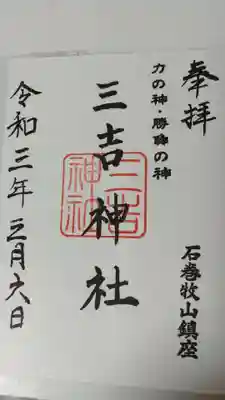 奉拝
力の神・勝負の神
石巻牧山鎮座
三吉神社
三吉神社
令和三年三月六日